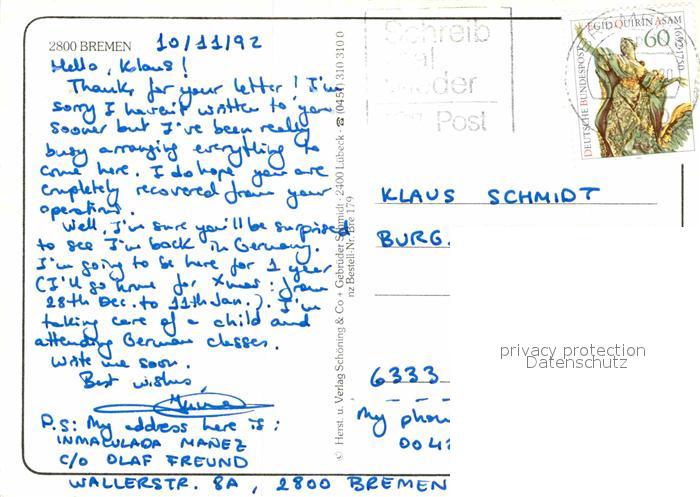 2800 BREMEN 10/11/92
Hello, Klaus!
Thanks for your letter! I'm
sorry I haven't written to you
sooner but I've been really
busy arranging everything to
come here. I do hope you are
completely recovered from your
operation.
Well, I'm sure you'll be surprised
to see I'm back in Germany.
I'm going to be here for 1 year
(I'll go home for Xmas: from
28th Dec. to 11th Jan.). I'm
taking care of a child and
attending German classes.
Write me soon.
Best wishes
P.S: My address here is:
INMACULADA MAÑEZ
C/O OLAF FREUND
WALLERSTR. 8A, 2800 BREMEN
© Herst. u. Verlag Schöning & Co + Gebrüder Schmidt · 2400 Lübeck · ☎ (0451) 310 310 0
nz Bestell-Nr. Bre 179
Schreib
mal
wieder
Post
EGID QUIRIN ASAM
1692-1750
60
DEUTSCHE BUNDESPOST
KLAUS SCHMIDT
BURG.
6333
My phon
0042
privacy protection
Datenschutz